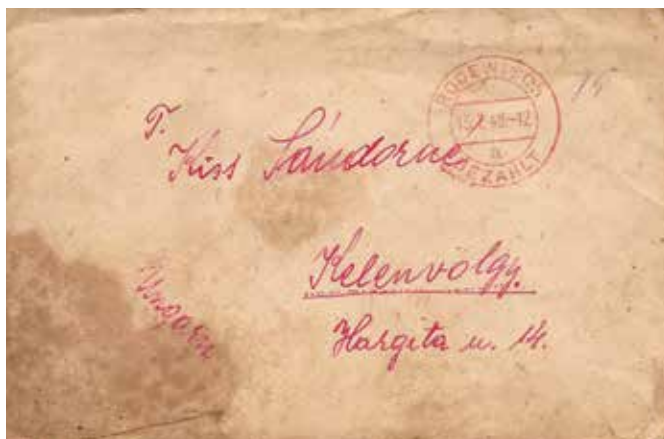 T.
Kiss Sándorné
Kelenvölgy.
Hargita u. 14.
Ungarn
BEZAHLT